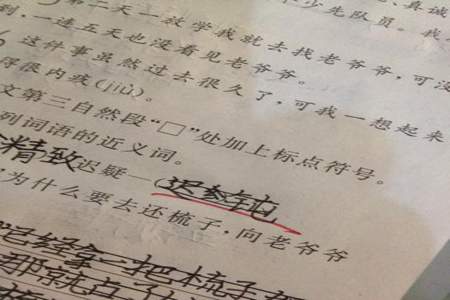 、真诚
少先队员。我
第二天一放学我就去找老爷爷,可没
到,一连五天也没看见老爷爷。
这件事虽然过去很久了,可我一想起来
得很内疚(jiù)。
文第三自然段“□”处加上标点符号。
列词语的近义词。
精致 迟疑—(迟钝
为什么要去还梳子,向老爷爷
一把梳子
那就